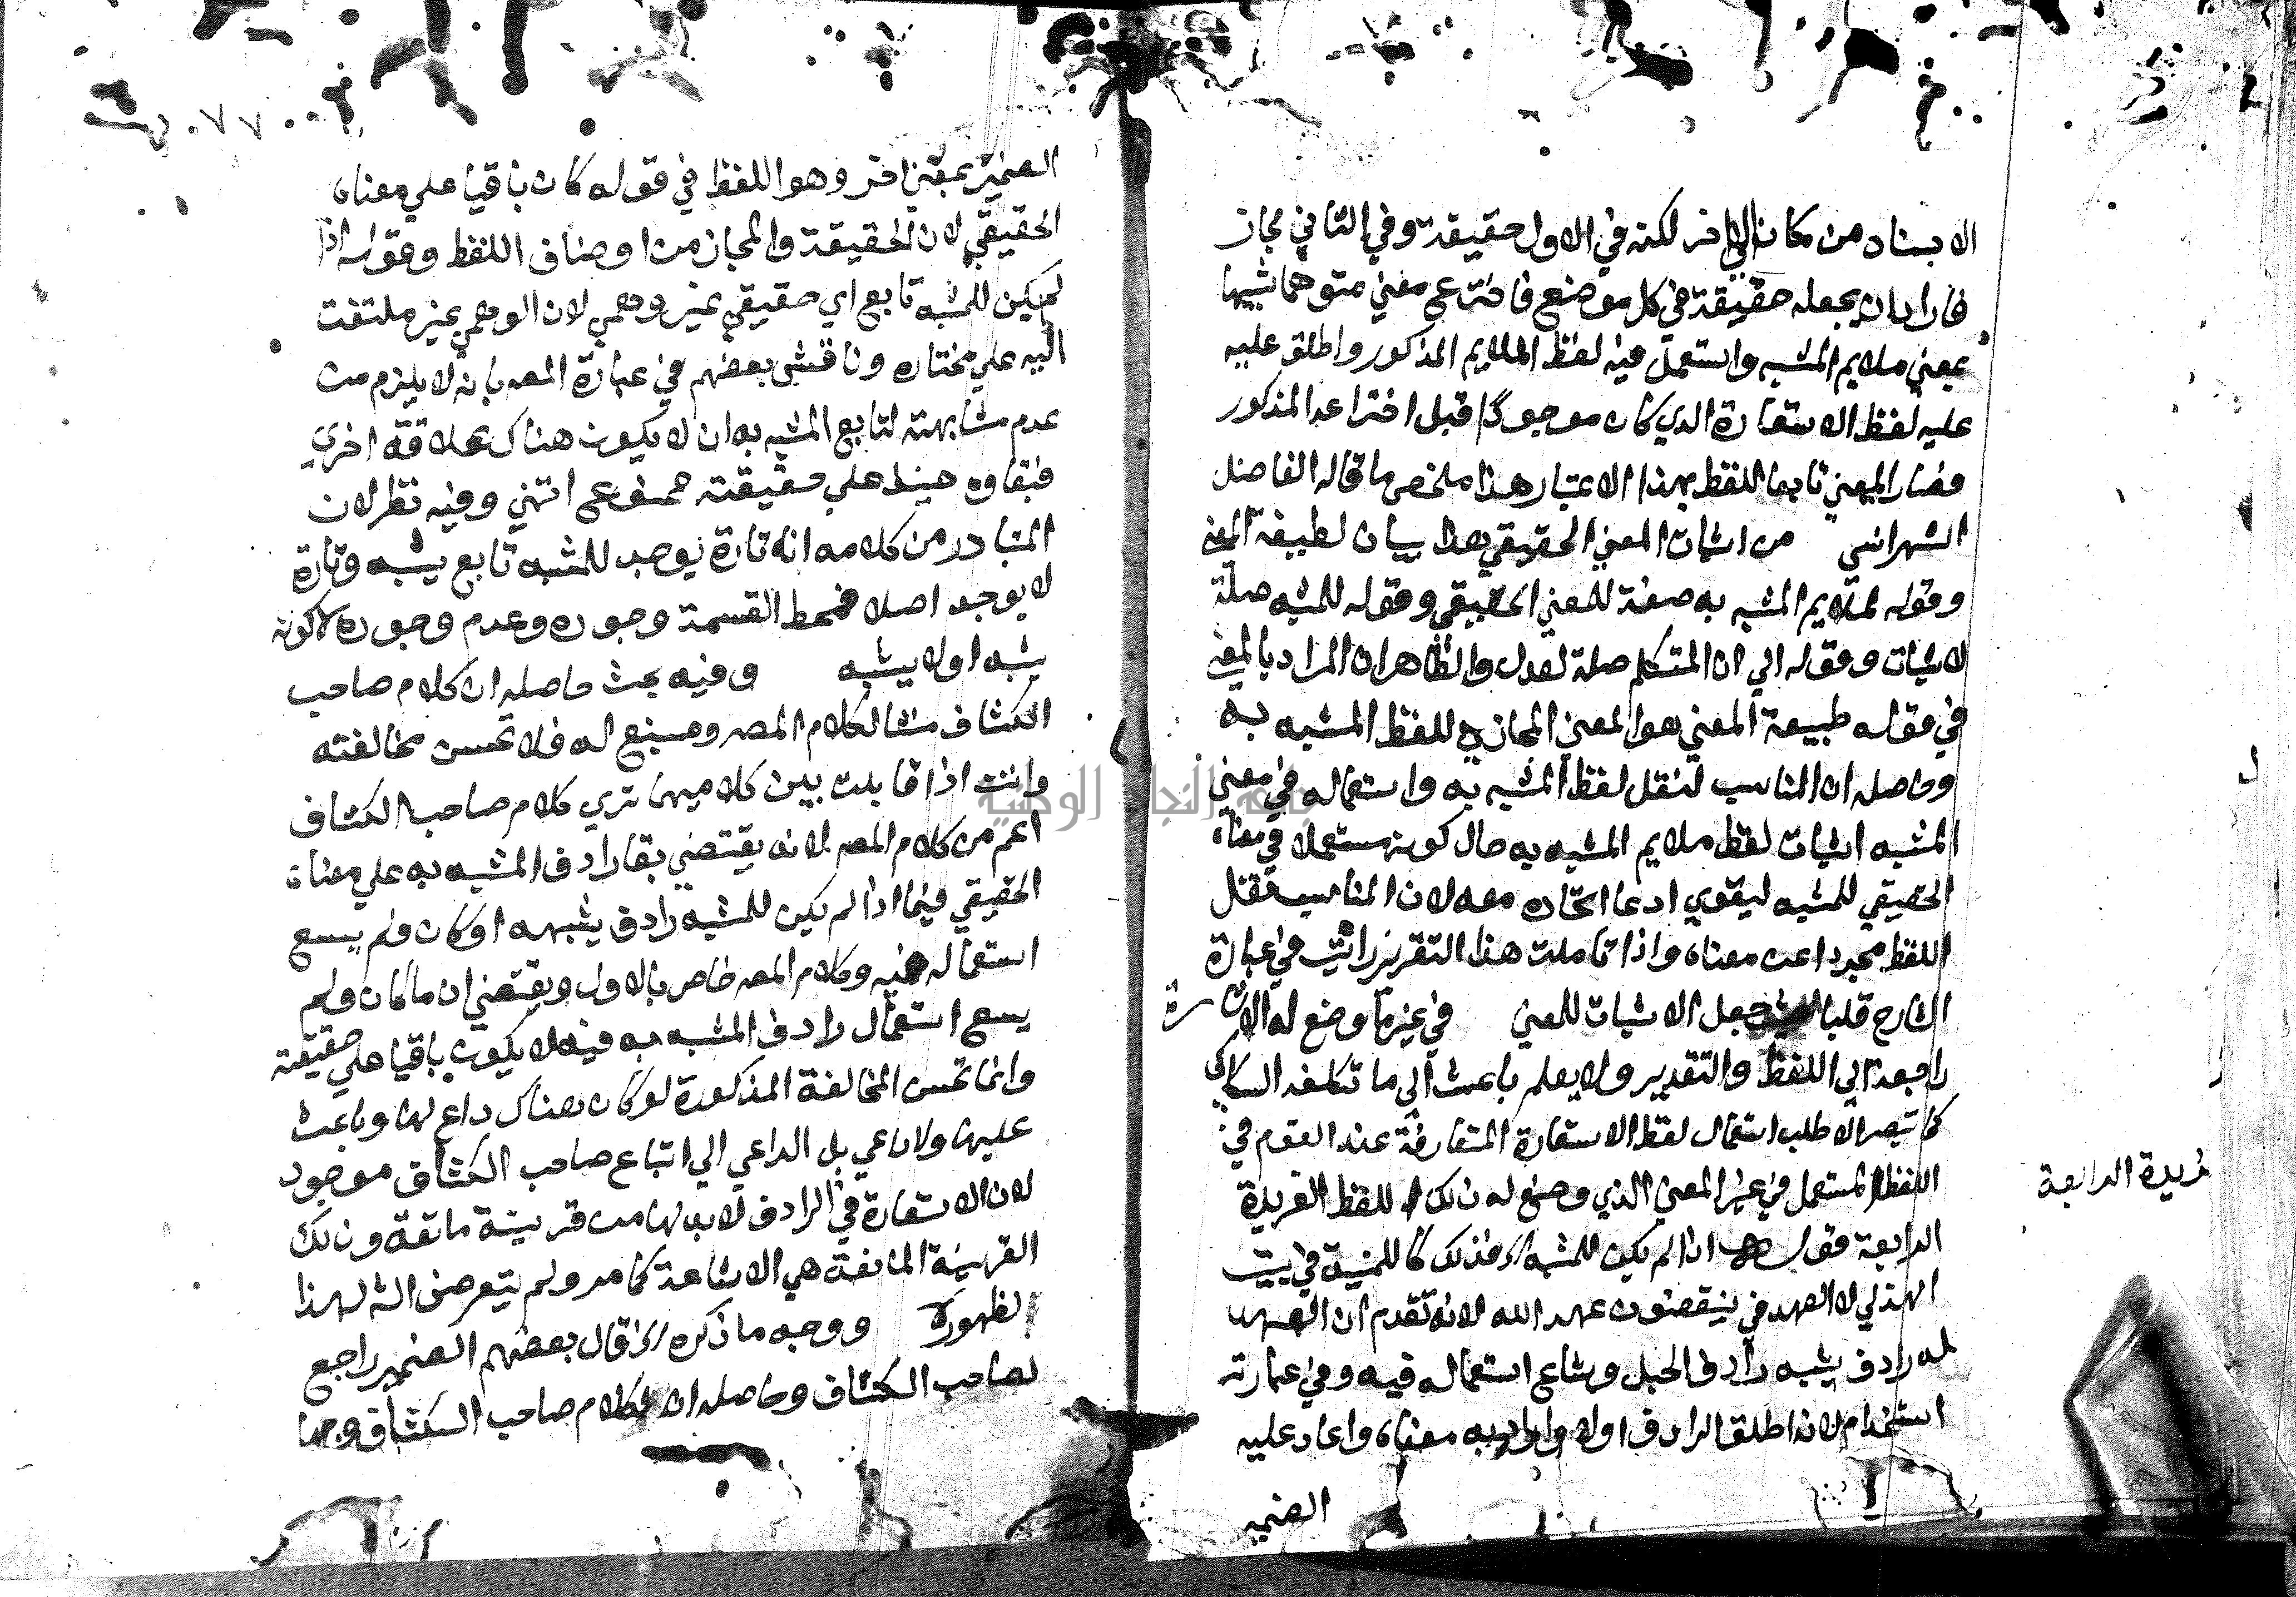 الاسناد من مكان الي اخر لكنه في الاول حقيقة وفي الثاني مجاز
فاراد ان يجعله حقيقة في كل موضع فاخترع معني متوهما شبيها
بمعني ملايم المشبه واستعمل فيه لفظ الملايم المذكور واطلق عليه
عليه لفظ الاستعارة الذي كان موجودا قبل اختراعه المذكور
فصار المعني تابعا للفظ بهذا الاعتبار هذا ملخص ما قاله الفاضل
الشهرانسي من اثبات المعني الحقيقي هذا بيان لطبيعة المعني
وقوله لملايم المشبه به صفة للمعني الحقيقي وقوله للمشبه صلة
لاثبات وقوله الي ان المتكلم صلة لعدل والظاهر ان المراد بالمعني
في قوله طبيعة المعني هو المعني المجازي للفظ المشبه به
وحاصله ان المناسب لنقل لفظ المشبه به واستعماله في معني
المشبه اثبات لفظ ملايم المشبه به حال كونه مستعملا في معناه
الحقيقي للمشبه ليقوي ادعا اتحاده معه لان المناسب نقل
اللفظ مجردا عن معناه واذا تاملت هذا التقرير رايت في عبارة
الشارح قلبا حيث جعل الاثبات للمعني في غير ما وضع له الاشارة
راجعة الي اللفظ والتقدير ولا يعلم باعث الي ما تكلفه السكاكي
كما تبصر الا طلب استعمال لفظ الاستعارة المتعارفة عند القوم في
اللفظ المستعمل في غير المعني الذي وضع له ذلك اللفظ الفريدة
الرابعة قوله اذا لم يكن للمشبه الخ وذلك كالمنية في بيت
الهذلي لا العهد في ينقضون عهد الله لانه تقدم ان العهد
له رادف يشبه رادف الحبل وشاع استعماله فيه وفي عبارته
استخدام لانه اطلق الرادف اولا واراد به معناه واعاد عليه
الضمير
فريدة الرابعة
الضمير بمعني اخر وهو اللفظ في قوله كان باقيا علي معناه
الحقيقي لان الحقيقة والمجاز من اوصاف اللفظ وقوله اذا
لم يكن للمشبه تابع اي حقيقي غير وهمي لان الوهمي غير ملتفت
اليه علي مختاره وناقش بعضهم في عبارة المصه بانه لا يلزم من
عدم مشابهته لتابع المشبه به ان لا يكون هناك علاقة اخري
فبقاوه حينئذ علي حقيقته ممنوع انتهي وفيه نظر لان
المتبادر من كلامه انه تارة يوجد للمشبه تابع يشبه وتارة
لا يوجد اصلا فمحط القسمة وجوده وعدم وجوده لا كونه
يشبه اولا يشبه وفيه بحث حاصله ان كلام صاحب
الكشاف منشا لكلام المصه ومنبع له فلا تحسن مخالفته
وانت اذا قابلت بين كلاميهما تري كلام صاحب الكشاف
اعم من كلام المصه لانه يقتضي بقا رادف المشبه به علي معناه
الحقيقي فيما اذا لم يكن للمشبه رادف يشبهه او كان ولم يسع
استعماله فيه وكلام المصه خاص بالاول ويقتضي ان ما كان ولم
يسع استعمال رادف المشبه به فيه لا يكون باقيا علي حقيقته
وانما تحسن المخالفة المذكورة لو كان هناك داع لها وباعث
عليها ولا داعي بل الداعي الي اتباع صاحب الكشاف موجود
لان الاستعارة في الرادف لا بد لها من قرينة مانعة وذلك
القرينة المانعة هي الاشاعة كما مر ولم يتعرض الش لهذا
لظهوره ووجه ما ذكره الخ قال بعضهم الضمير راجع
لصاحب الكشاف وحاصله ان لكلام صاحب الكشاف وجها